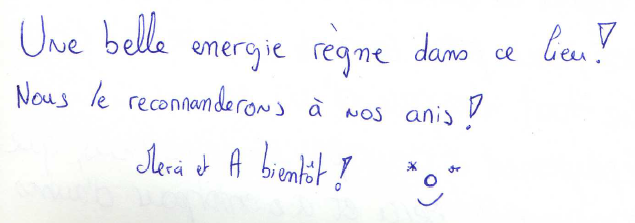 Une belle energie règne dans ce lieu !
Nous le recommanderons à nos amis !
Merci et A bientôt !